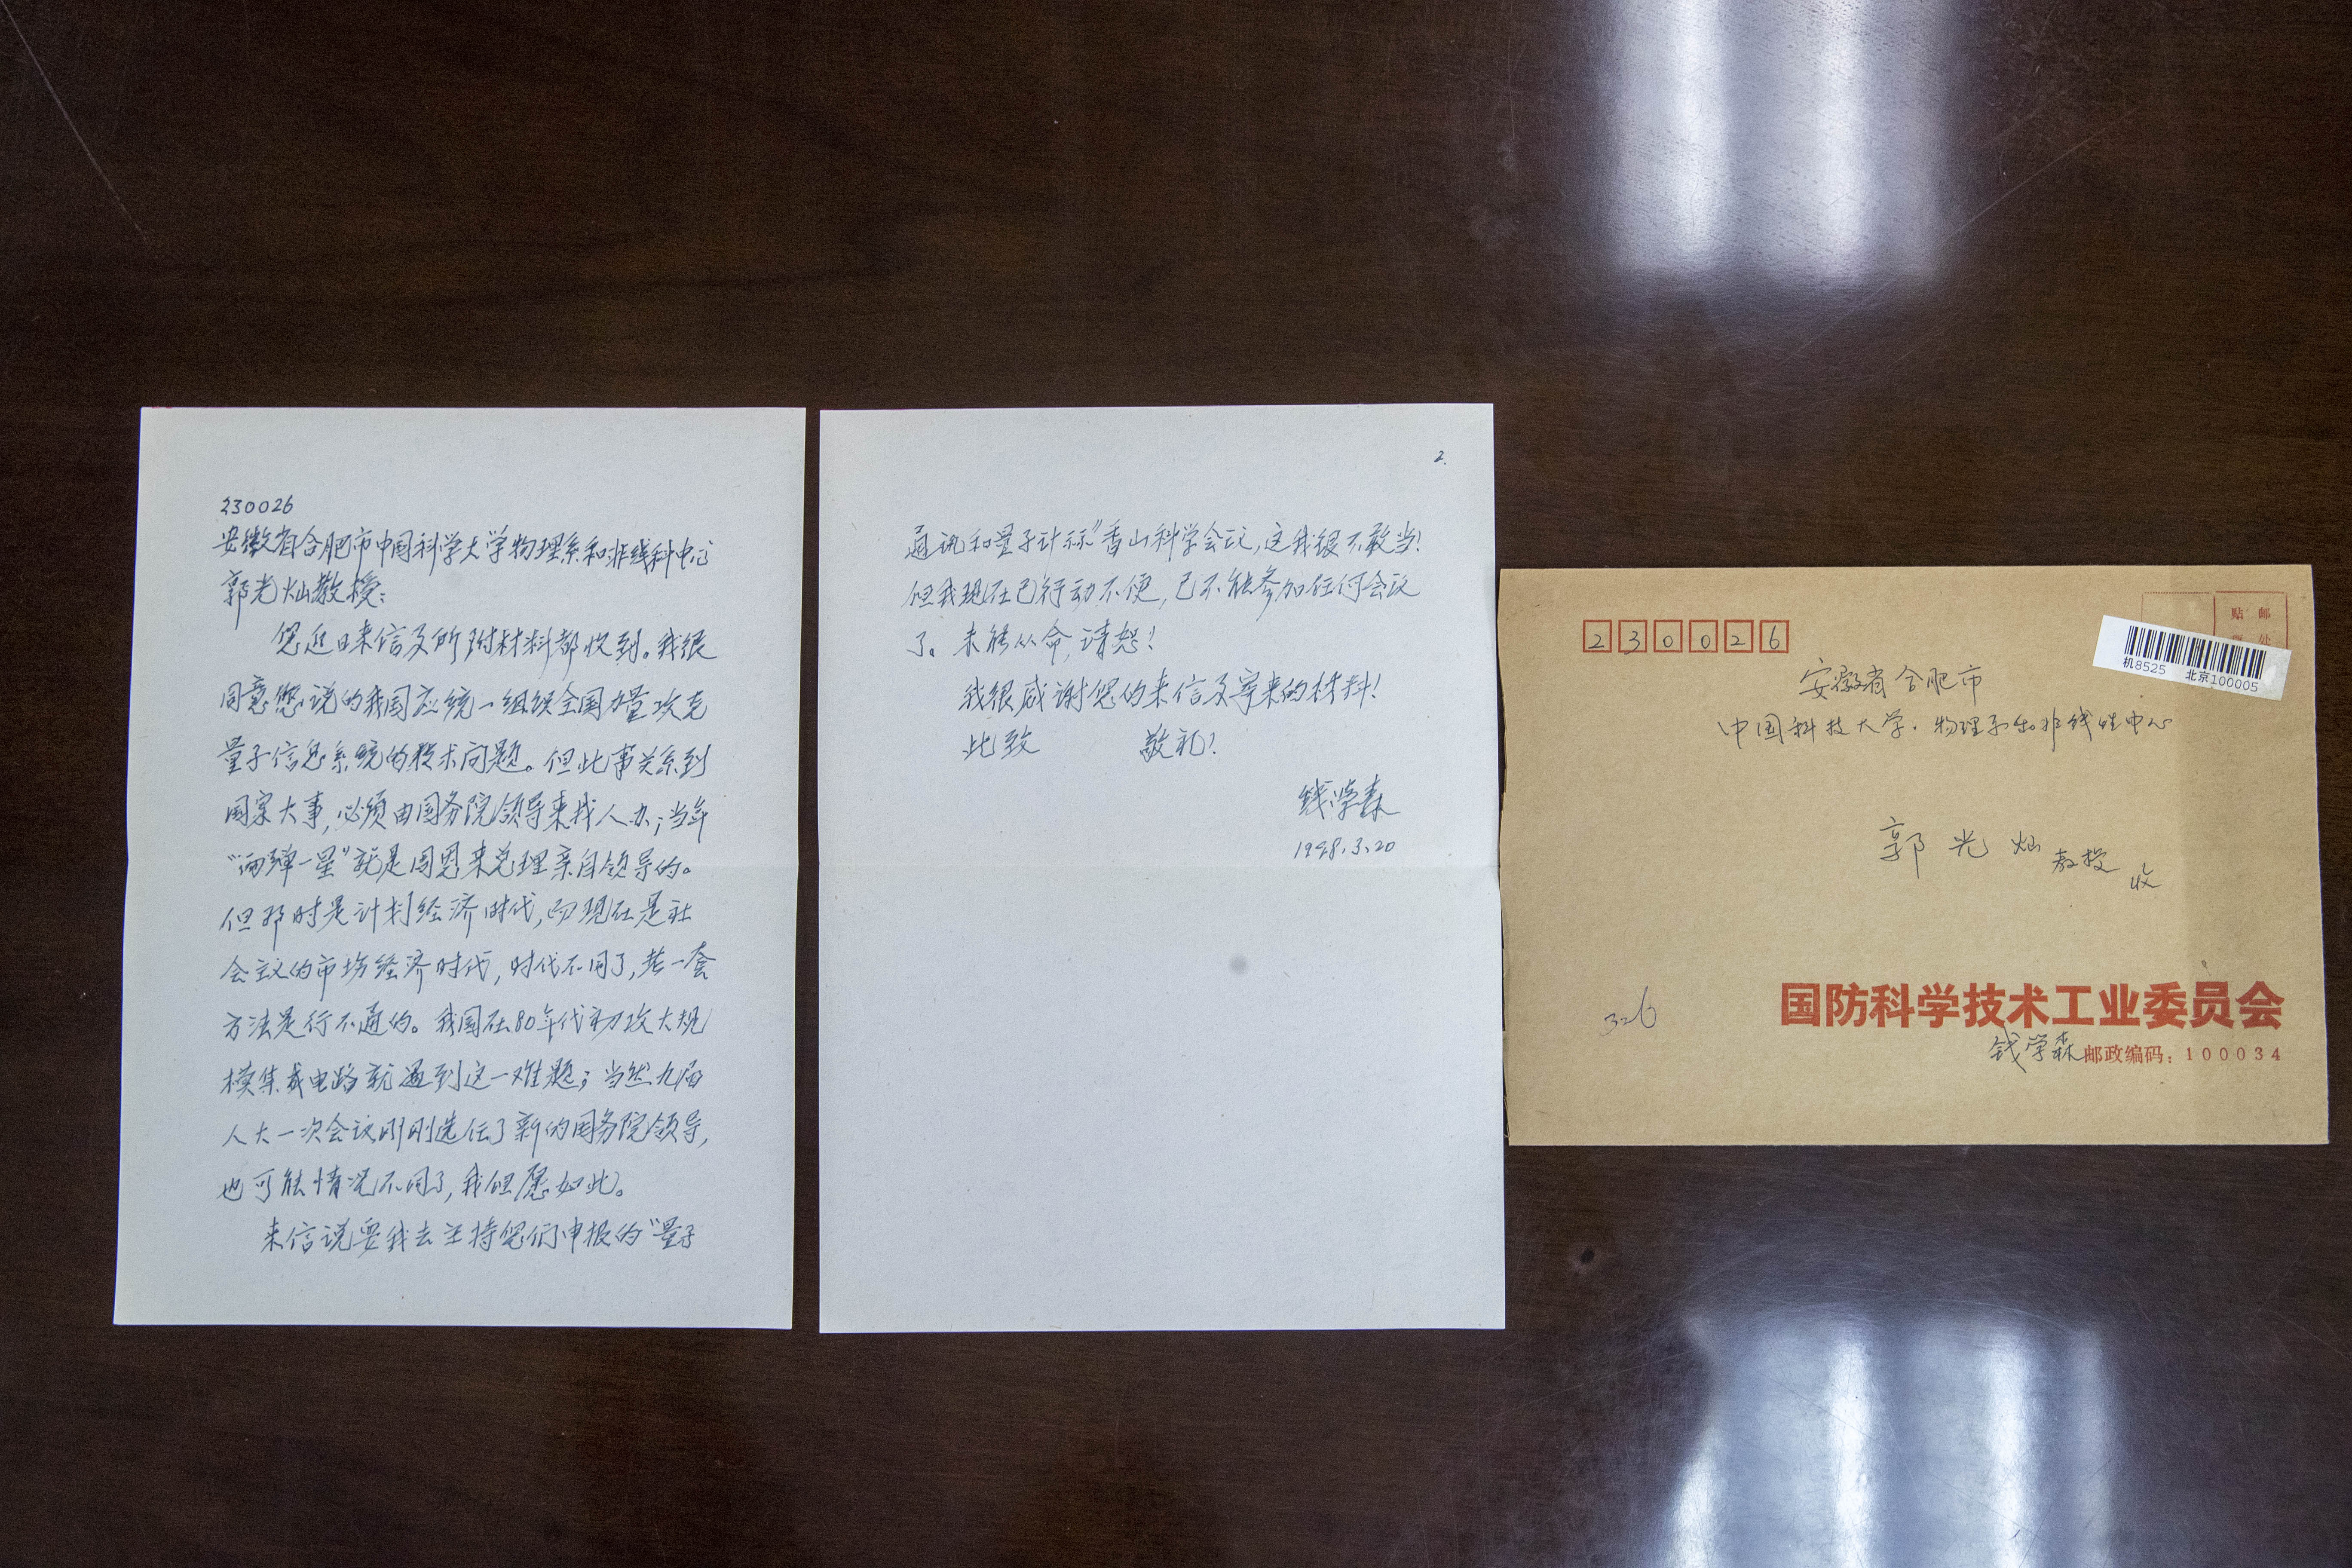 230026
安徽省合肥市中国科学大学物理系和非线科中心
郭光灿教授：
您近日来信及所附材料都收到。我很
同意您说的我国应统一组织全国力量攻克
量子信息系统的技术问题。但此事关系到
国家大事，必须由国务院领导来找人办；当年
“两弹一星”就是周恩来总理亲自领导的。
但那时是计划经济时代，而现在是社
会主义的市场经济时代，时代不同了，老一套
方法是行不通的。我国在80年代初攻大规
模集成电路就遇到这一难题；当然九届
人大一次会议刚刚选任了新的国务院领导，
也可能情况不同了，我但愿如此。
来信说要我去主持您们申报的“量子
2.
通讯和量子计标”香山科学会议，这我很不敢当！
但我现在已行动不便，已不能参加任何会议
了。未能从命，请恕！
我很感谢您的来信及寄来的材料！
此致 敬礼！
钱学森
1998.3.20
230026
贴 邮
票 处
机8525 北京100005
安徽省合肥市
中国科技大学·物理系和非线性中心
郭光灿教授 收
326
国防科学技术工业委员会
钱学森 邮政编码：100034